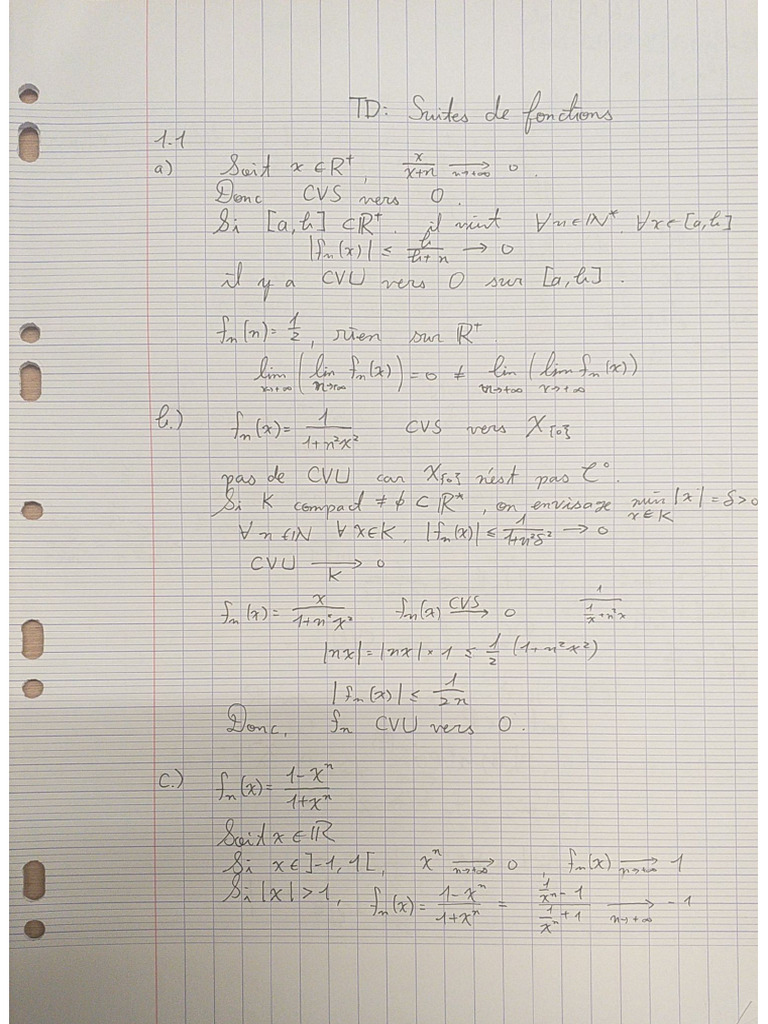 TD: Suites de fonctions
1.1
a) Soit x ∈ ℝ⁺, x/(x+n) →_{n→+∞} 0.
Donc CVS vers 0.
Si [a,b] ⊂ ℝ⁺. il vient ∀n∈ℕ*. ∀x∈[a,b]
|fₙ(x)| ≤ b/(b+n) → 0
il y a CVU vers 0 sur [a,b].
fₙ(n) = 1/2, rien sur ℝ⁺.
lim_{x→+∞} (lim_{n→+∞} fₙ(x)) = 0 ≠ lim_{n→+∞} (lim_{x→+∞} fₙ(x))
b.) fₙ(x) = 1/(1+n²x²) CVS vers χ_{{0}}
pas de CVU car χ_{{0}} n'est pas C°.
Si K compact ≠ ∅ ⊂ ℝ*, on envisage min_{x∈K} |x| = δ > 0
∀n∈ℕ ∀x∈K, |fₙ(x)| ≤ 1/(1+n²δ²) → 0
CVU →_{K} 0
fₙ(x) = x/(1+n²x²) fₙ(x) →^{CVS} 0 1/(1/x+n²x)
|nx| = |nx| × 1 ≤ 1/2 (1+n²x²)
|fₙ(x)| ≤ 1/2n
Donc, fₙ CVU vers 0.
c.) fₙ(x) = (1-xⁿ)/(1+xⁿ)
Soit x∈ℝ
Si x∈]-1,1[, xⁿ →_{n→+∞} 0, fₙ(x) →_{n→+∞} 1
Si |x|>1, fₙ(x) = (1-xⁿ)/(1+xⁿ) = (1/xⁿ - 1)/(1/xⁿ + 1) →_{n→+∞} -1